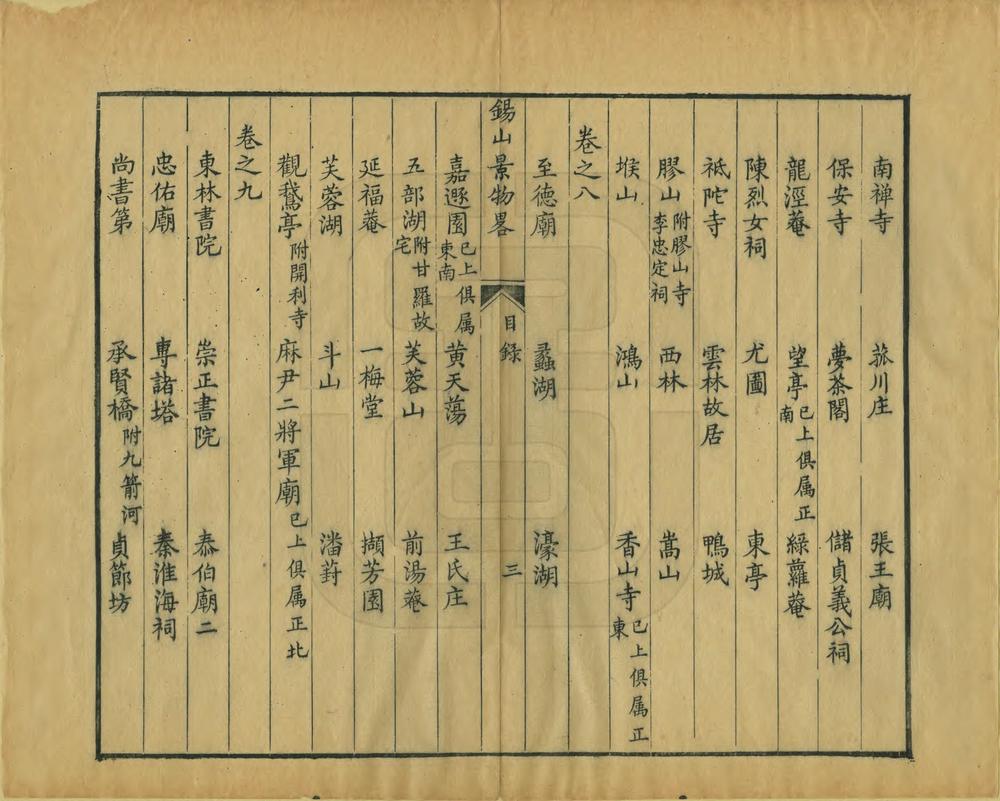 南禅寺 菰川庄 張王廟
保安寺 夢茶閣 儲貞義公祠
龍涇菴 望亭已上俱属正南 綠蘿菴
陳烈女祠 尤圖 東亭
祗陀寺 雲林故居 鴨城
膠山附膠山寺李忠定祠 西林 嵩山
堠山 鴻山 香山寺已上俱属正東
卷之八
至德廟 蠡湖 濠湖
錫山景物畧 目錄 三
嘉遯園已上俱属東南 黄天蕩 王氏庄
五部湖附甘羅故宅 芙蓉山 前湯菴
延福菴 一梅堂 擷芳園
芙蓉湖 斗山 潘葑
觀鵞亭附開利寺 麻尹二將軍廟已上俱属正北
卷之九
東林書院 崇正書院 泰伯廟二
忠佑廟 專諸塔 秦淮海祠
尚書第 承賢橋附九箭河 貞節坊